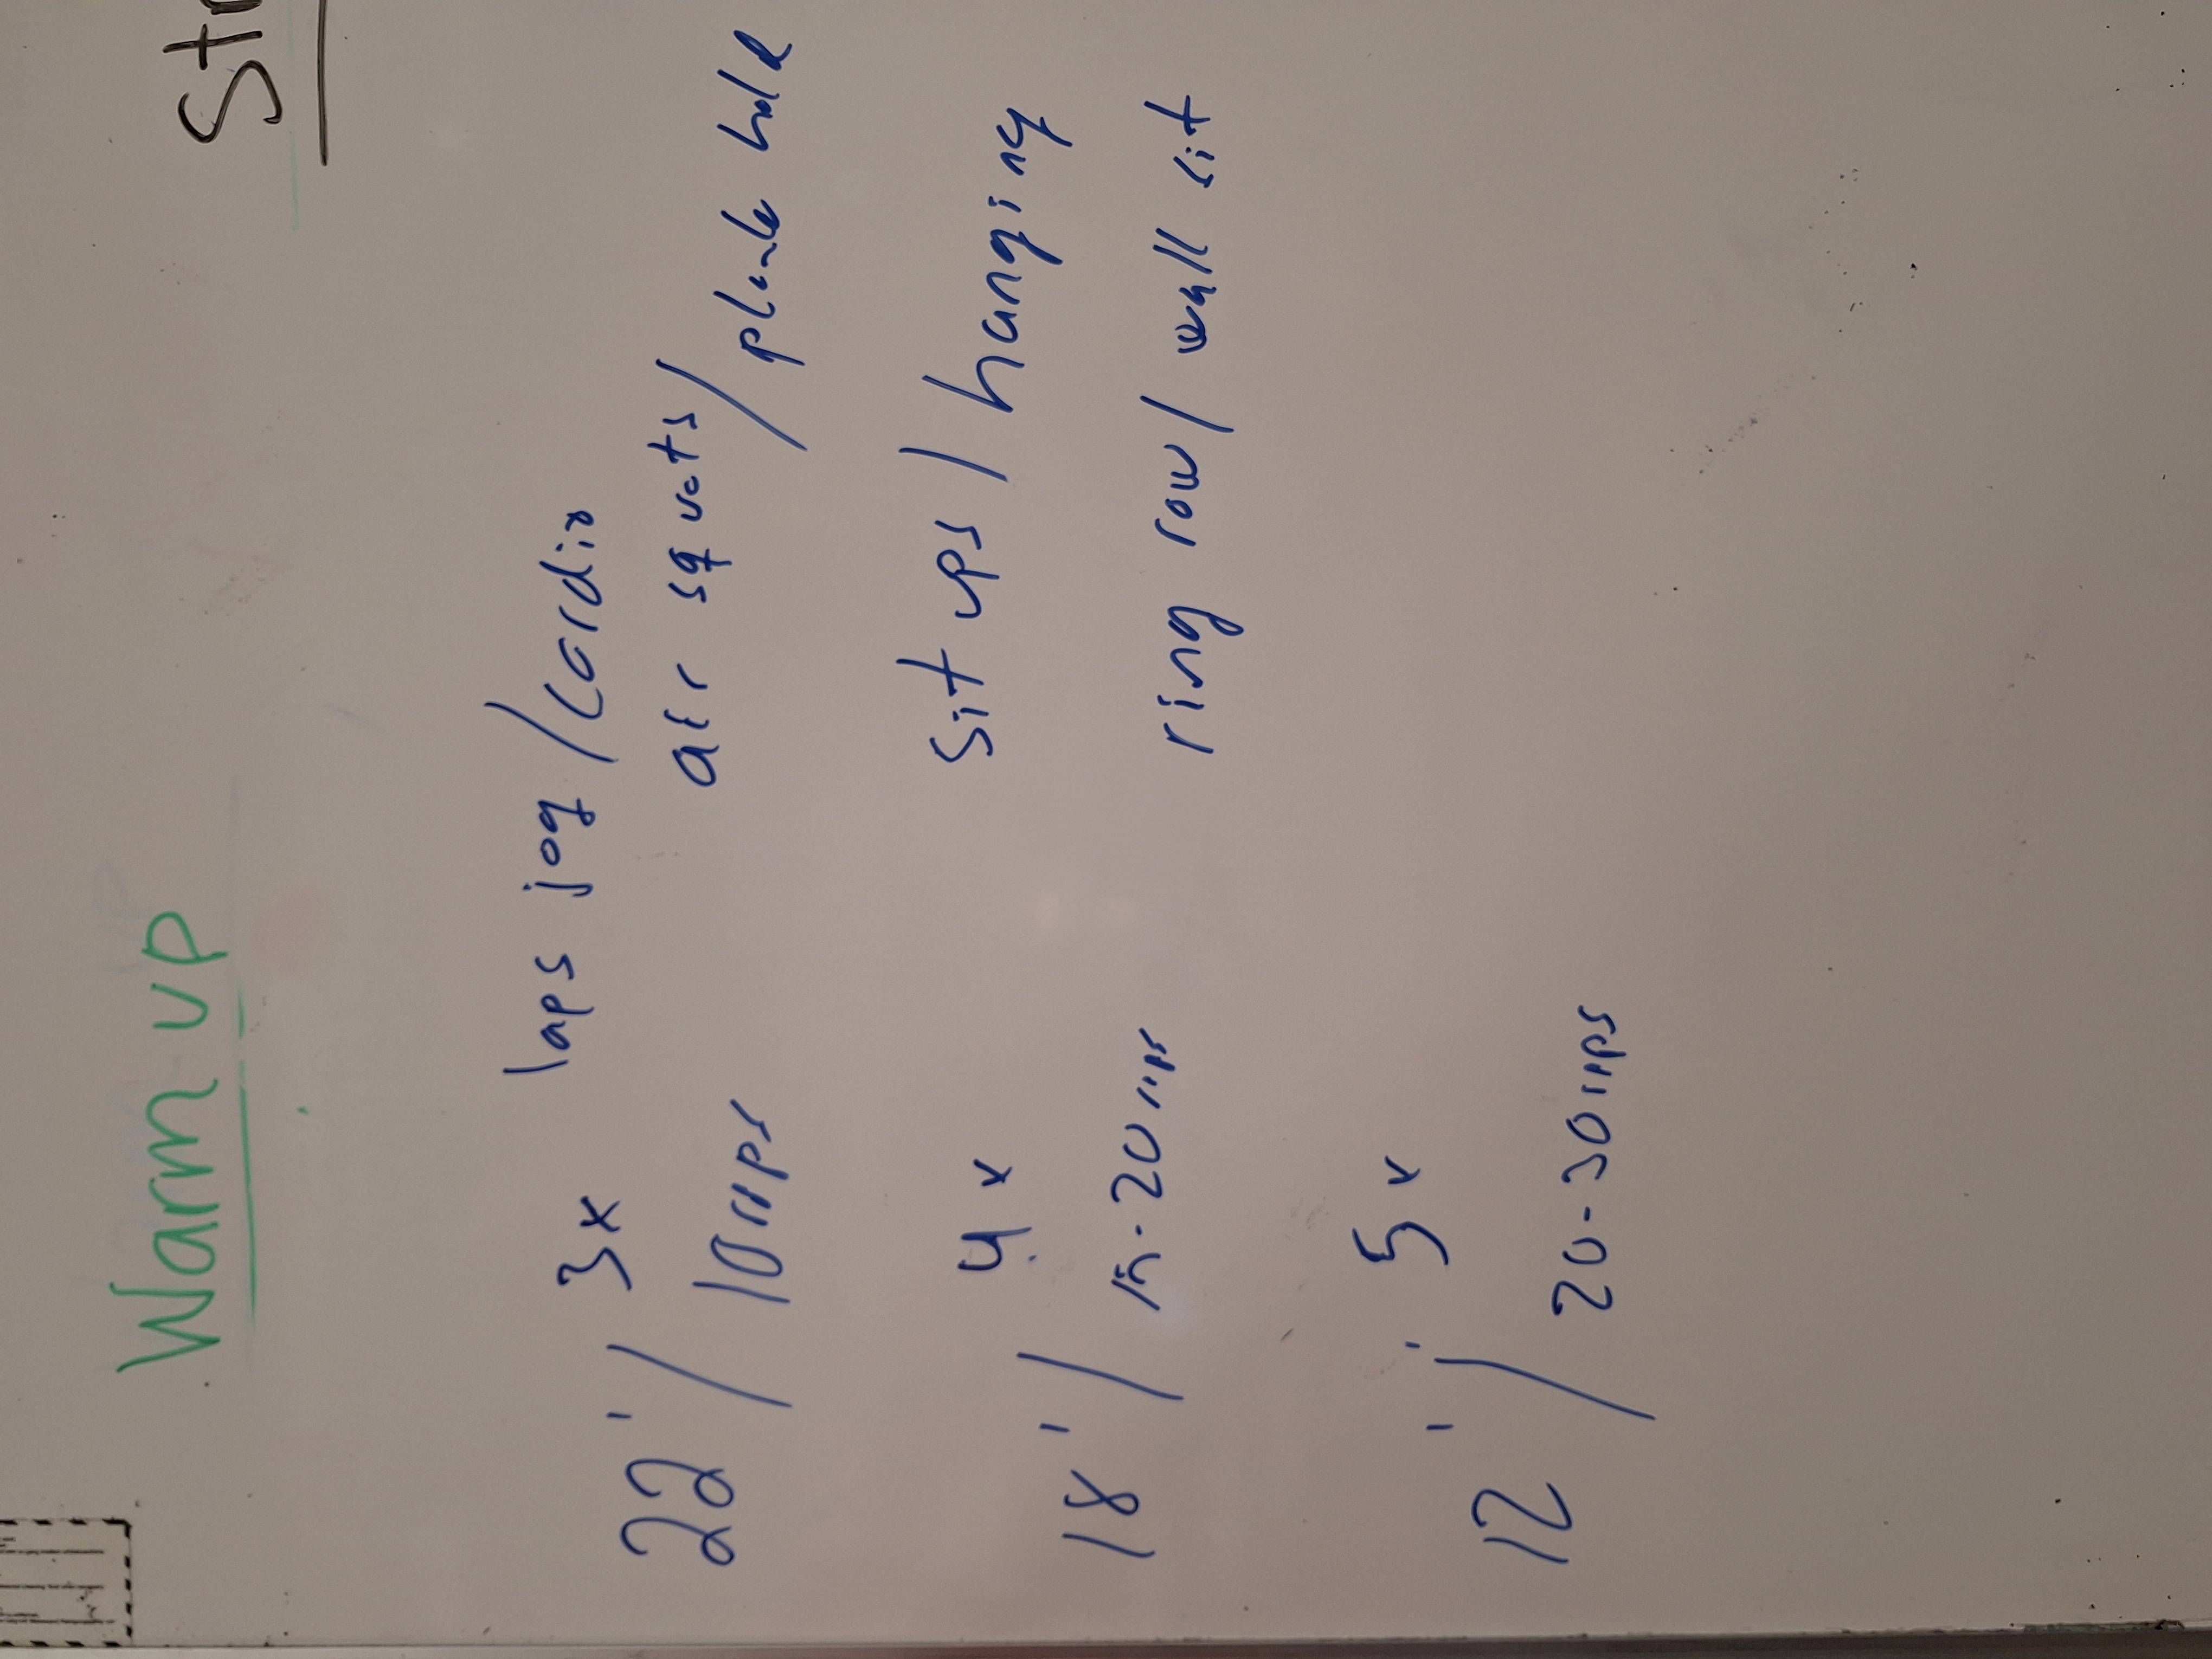 Warm up
3x laps jog/cardio
22' / 10 reps air squats/plank hold
4x sit ups / hanging
18' / 15-20 reps ring row/ wall sit
5x
12' / 20-30 reps